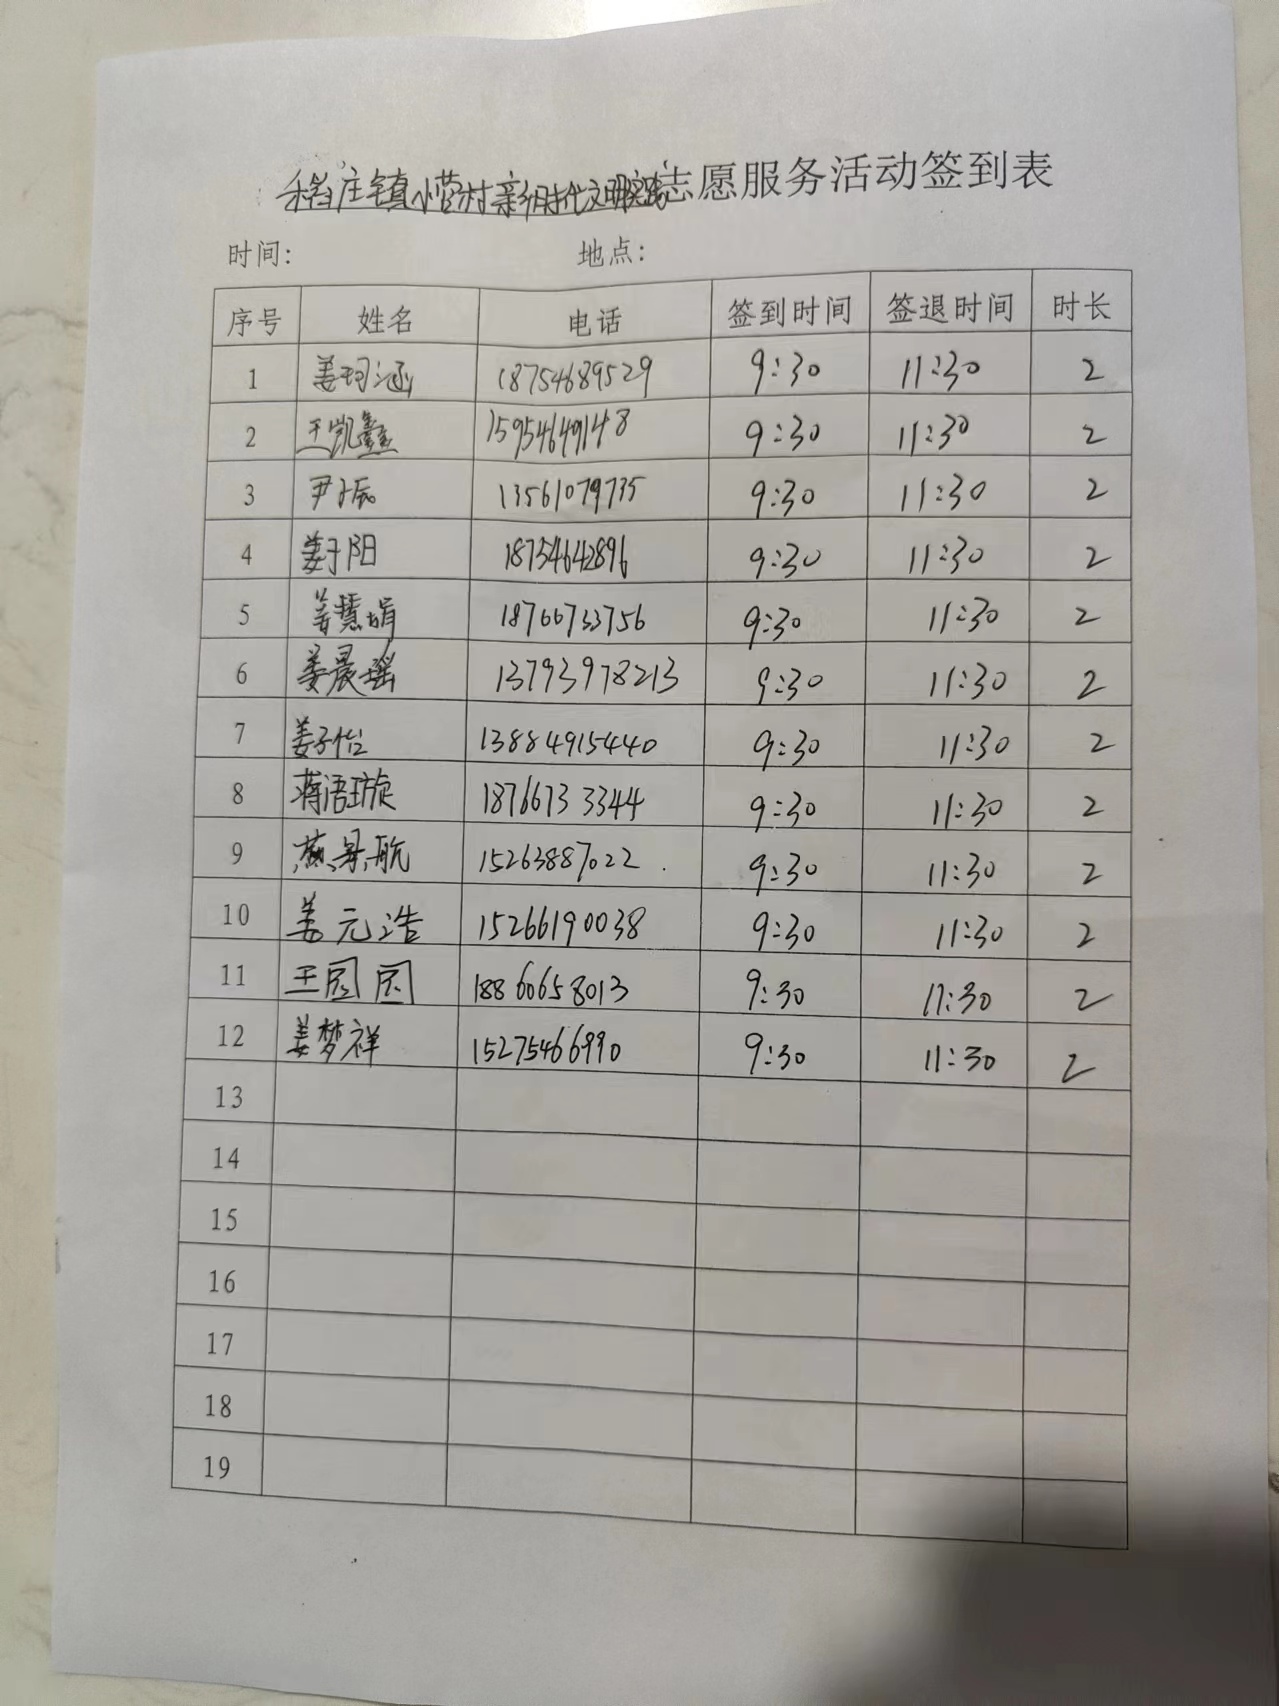 稻庄镇小营村新时代文明实践志愿服务活动签到表
时间: 地点:
序号 姓名 电话 签到时间 签退时间 时长
1 姜珂涵 18754689529 9:30 11:30 2
2 王凯鑫 15954649148 9:30 11:30 2
3 尹子辰 13561079735 9:30 11:30 2
4 姜子阳 18754642896 9:30 11:30 2
5 姜慧娟 18766733756 9:30 11:30 2
6 姜晨瑶 13793978213 9:30 11:30 2
7 姜子怡 13884915440 9:30 11:30 2
8 蒋语璇 18766733344 9:30 11:30 2
9 燕景航 15263887022 9:30 11:30 2
10 姜元浩 15266190038 9:30 11:30 2
11 王园园 18860658013 9:30 11:30 2
12 姜梦祥 15275466990 9:30 11:30 2
13
14
15
16
17
18
19